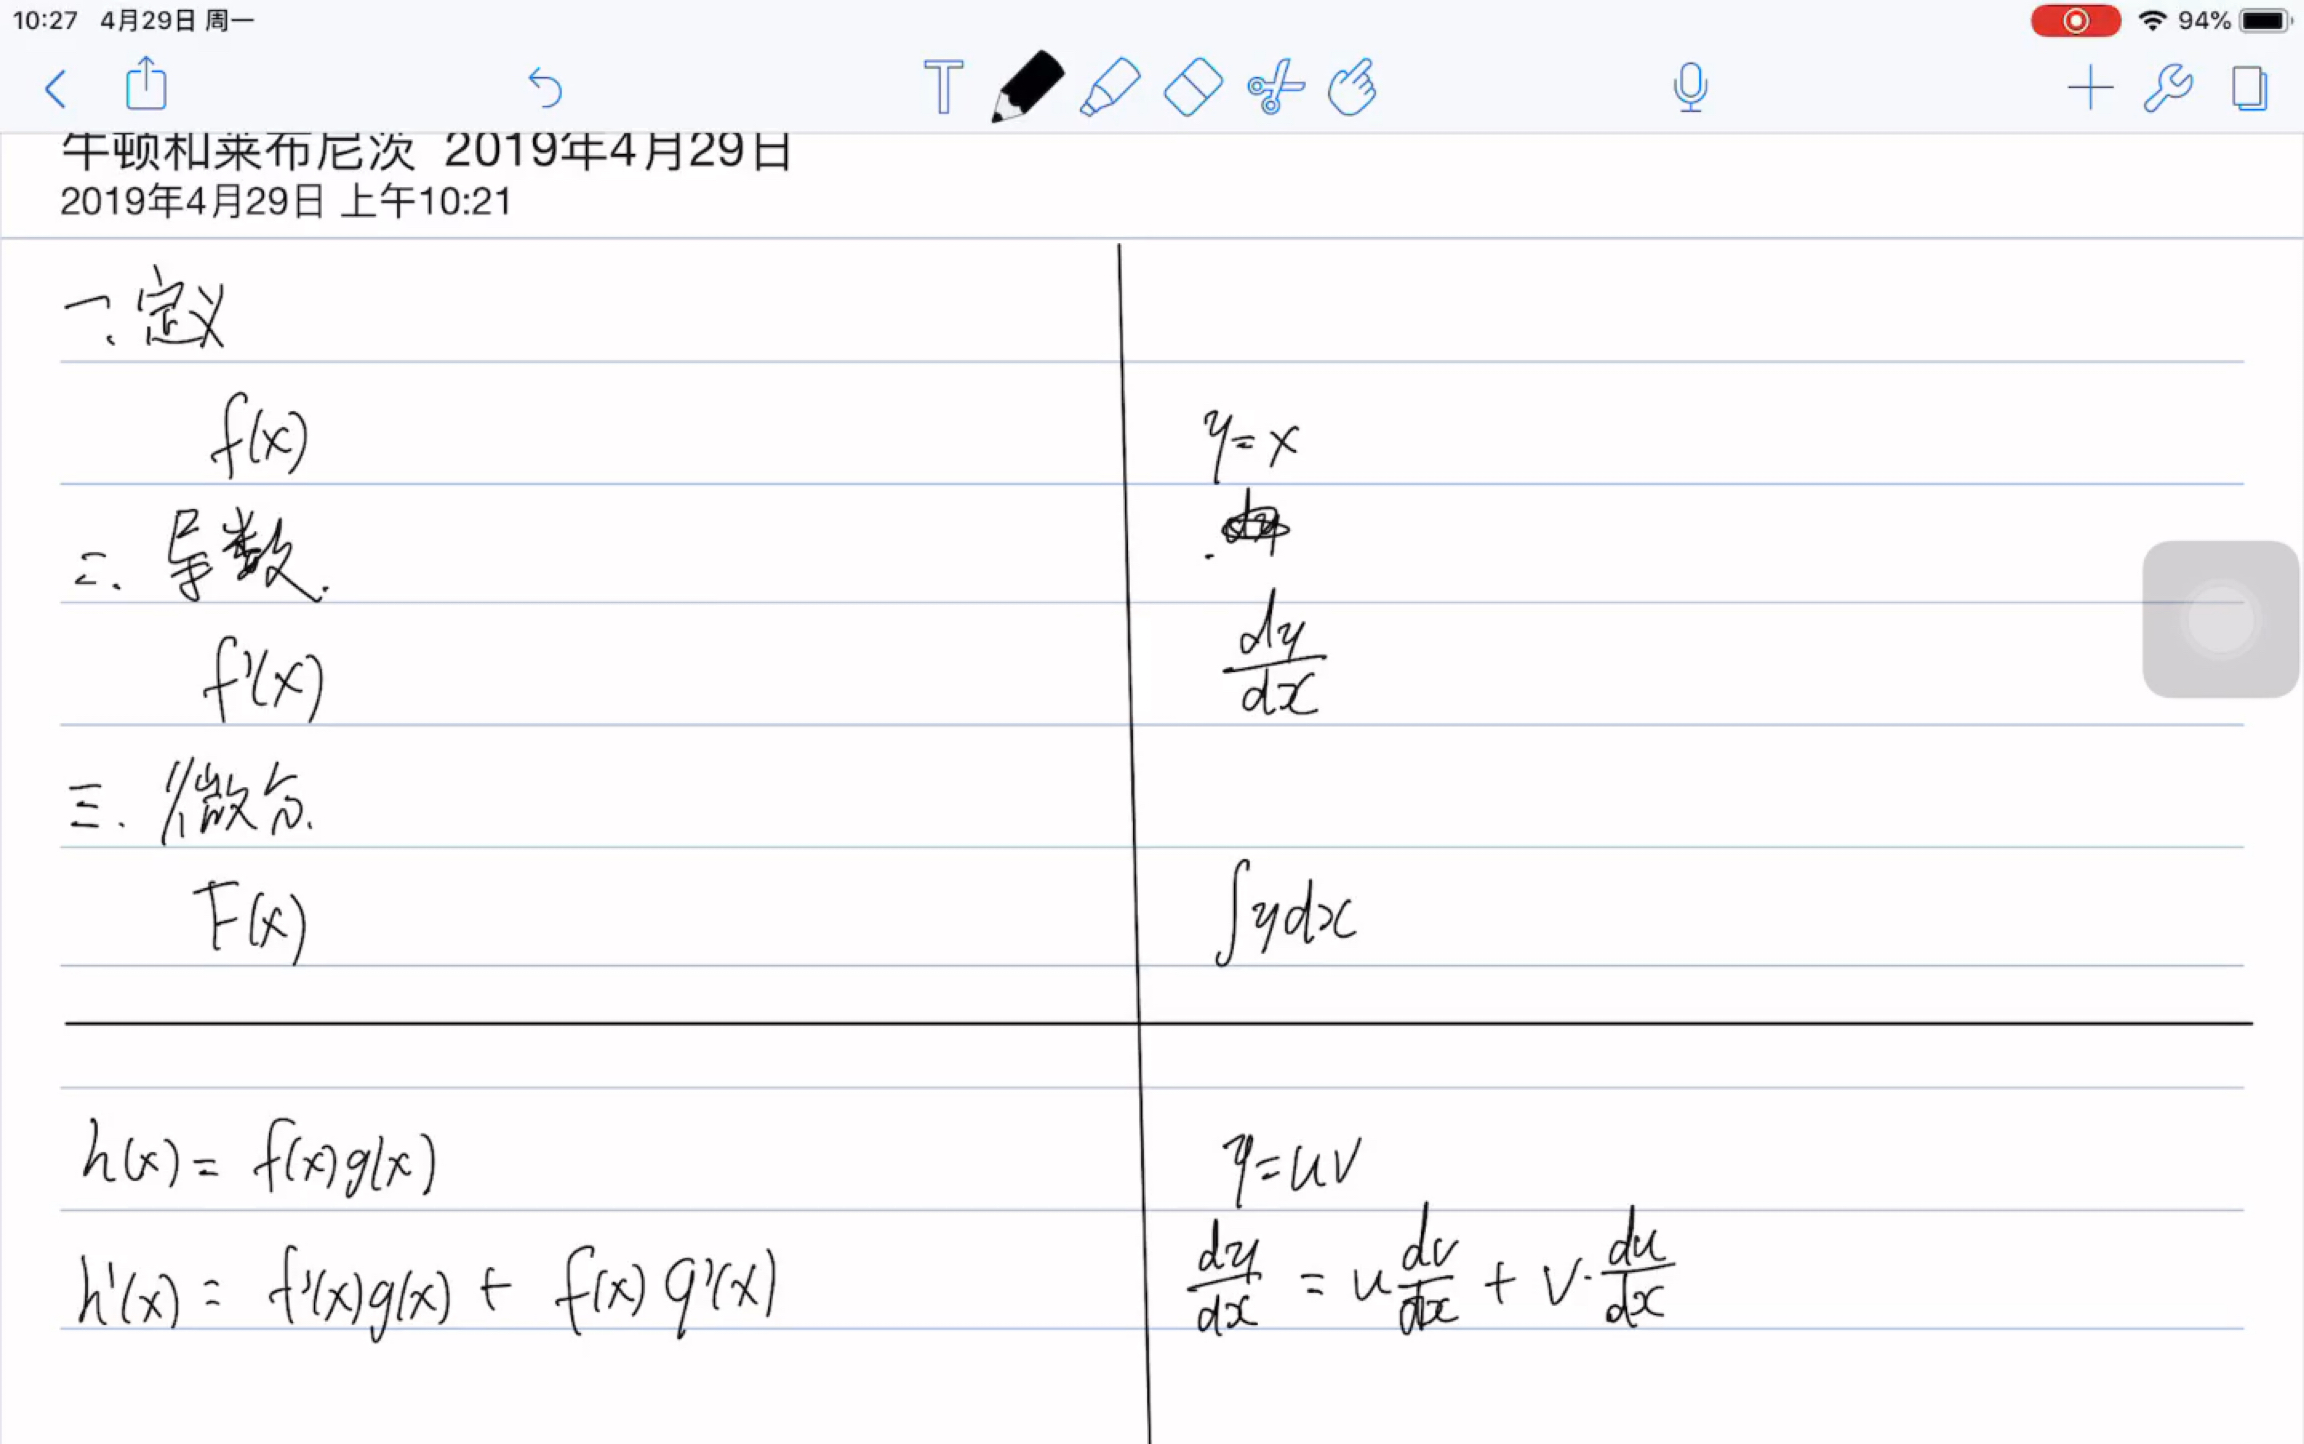 10:27 4月29日 周一
94%
T
牛顿和莱布尼次 2019年4月29日
2019年4月29日 上午10:21
一. 定义
f(x)
y = x
二. 导数.
f'(x)
dy/dx
三. 微分.
F(x)
∫ydx
h(x) = f(x)g(x)
y = uv
h'(x) = f'(x)g(x) + f(x)g'(x)
dy/dx = u dv/dx + v · du/dx